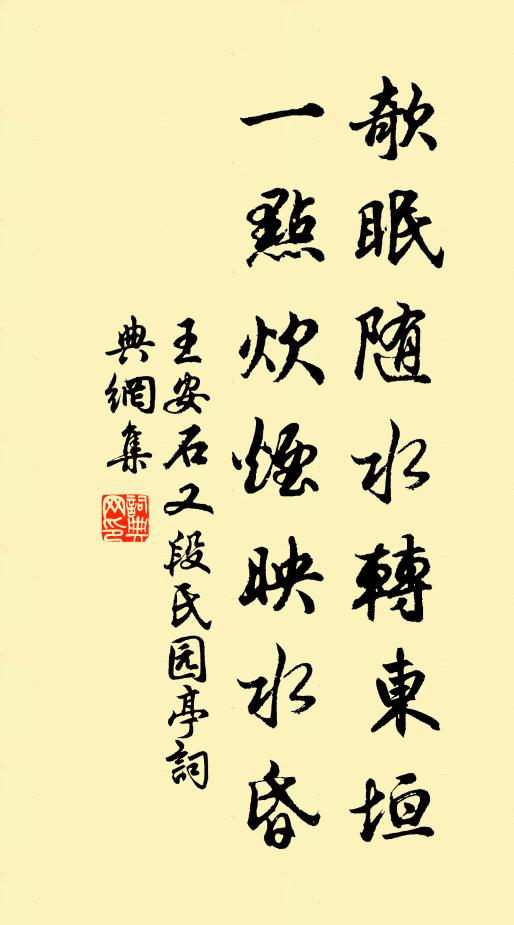 欹眠随水轉東垣
一點炊煙映水昏
王安石又段氏园亭詞
典網集
詞典
网印